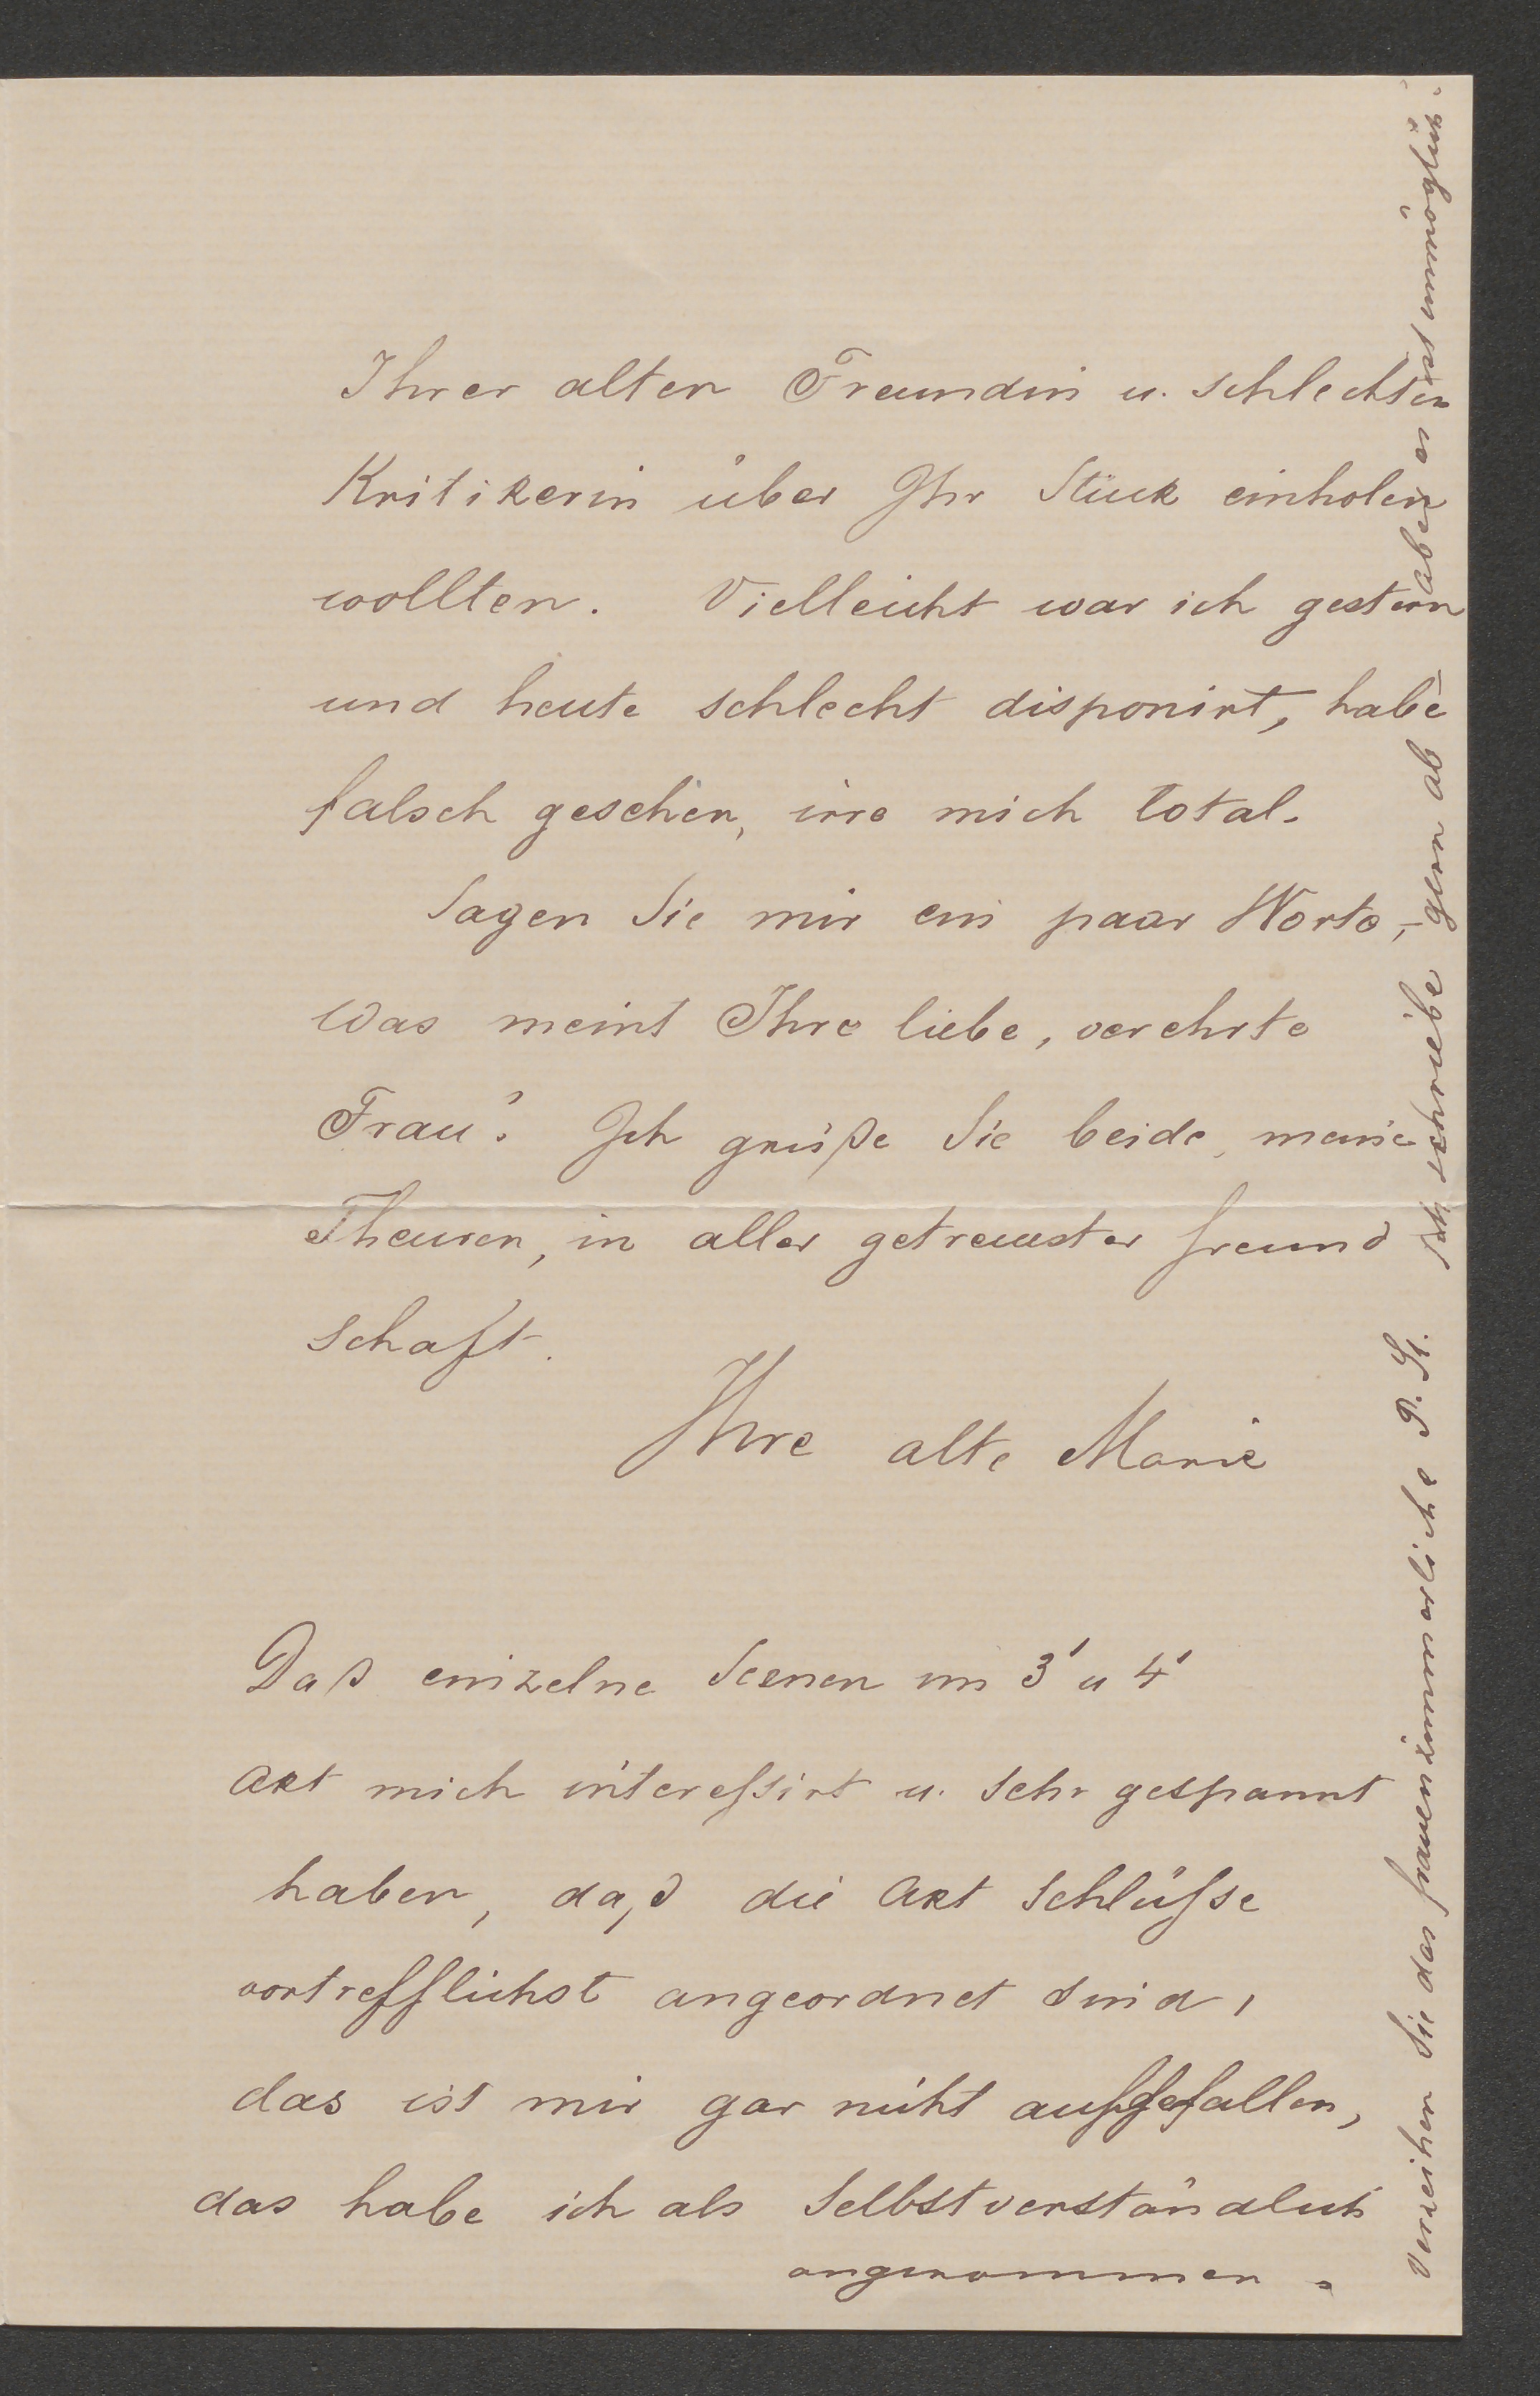 Ihrer alten Freundin u. schlechten
Kritikerin über Ihr Stück einholen
wollten. Vielleicht war ich gestern
und heute schlecht disponirt, habe
falsch gesehen, irre mich total.
Sagen Sie mir ein paar Worte,
was meint Ihre liebe, verehrte
Frau? Ich grüße Sie beide, meine
Theuren, in aller getreuester Freund
schaft.
Ihre alte Marie
Daß einzelne Scenen im 3' u 4'
Akt mich interessirt u. sehr gespannt
haben, daß die Akt Schlüsse
vortrefflichst angeordnet sind,
das ist mir gar nicht aufgefallen,
das habe ich als Selbstverständlich
angenommen.
Verzeihen Sie das frauenzimmerliche P. St. Ich schriebe gern ab – aber es ist unmöglich.